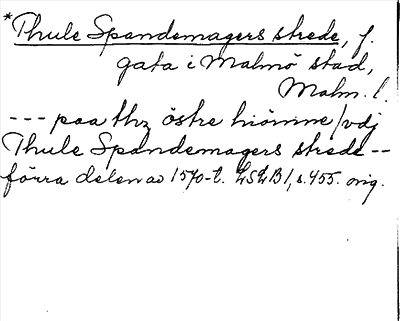 *Thule Spandemagers strede, f.
gata i Malmö stad,
Malm. l.
--- paa thz östre hiömme/vdj
Thule Spandemagers strede --
förra delen av 1570-t. LSLB1, s. 455. orig.